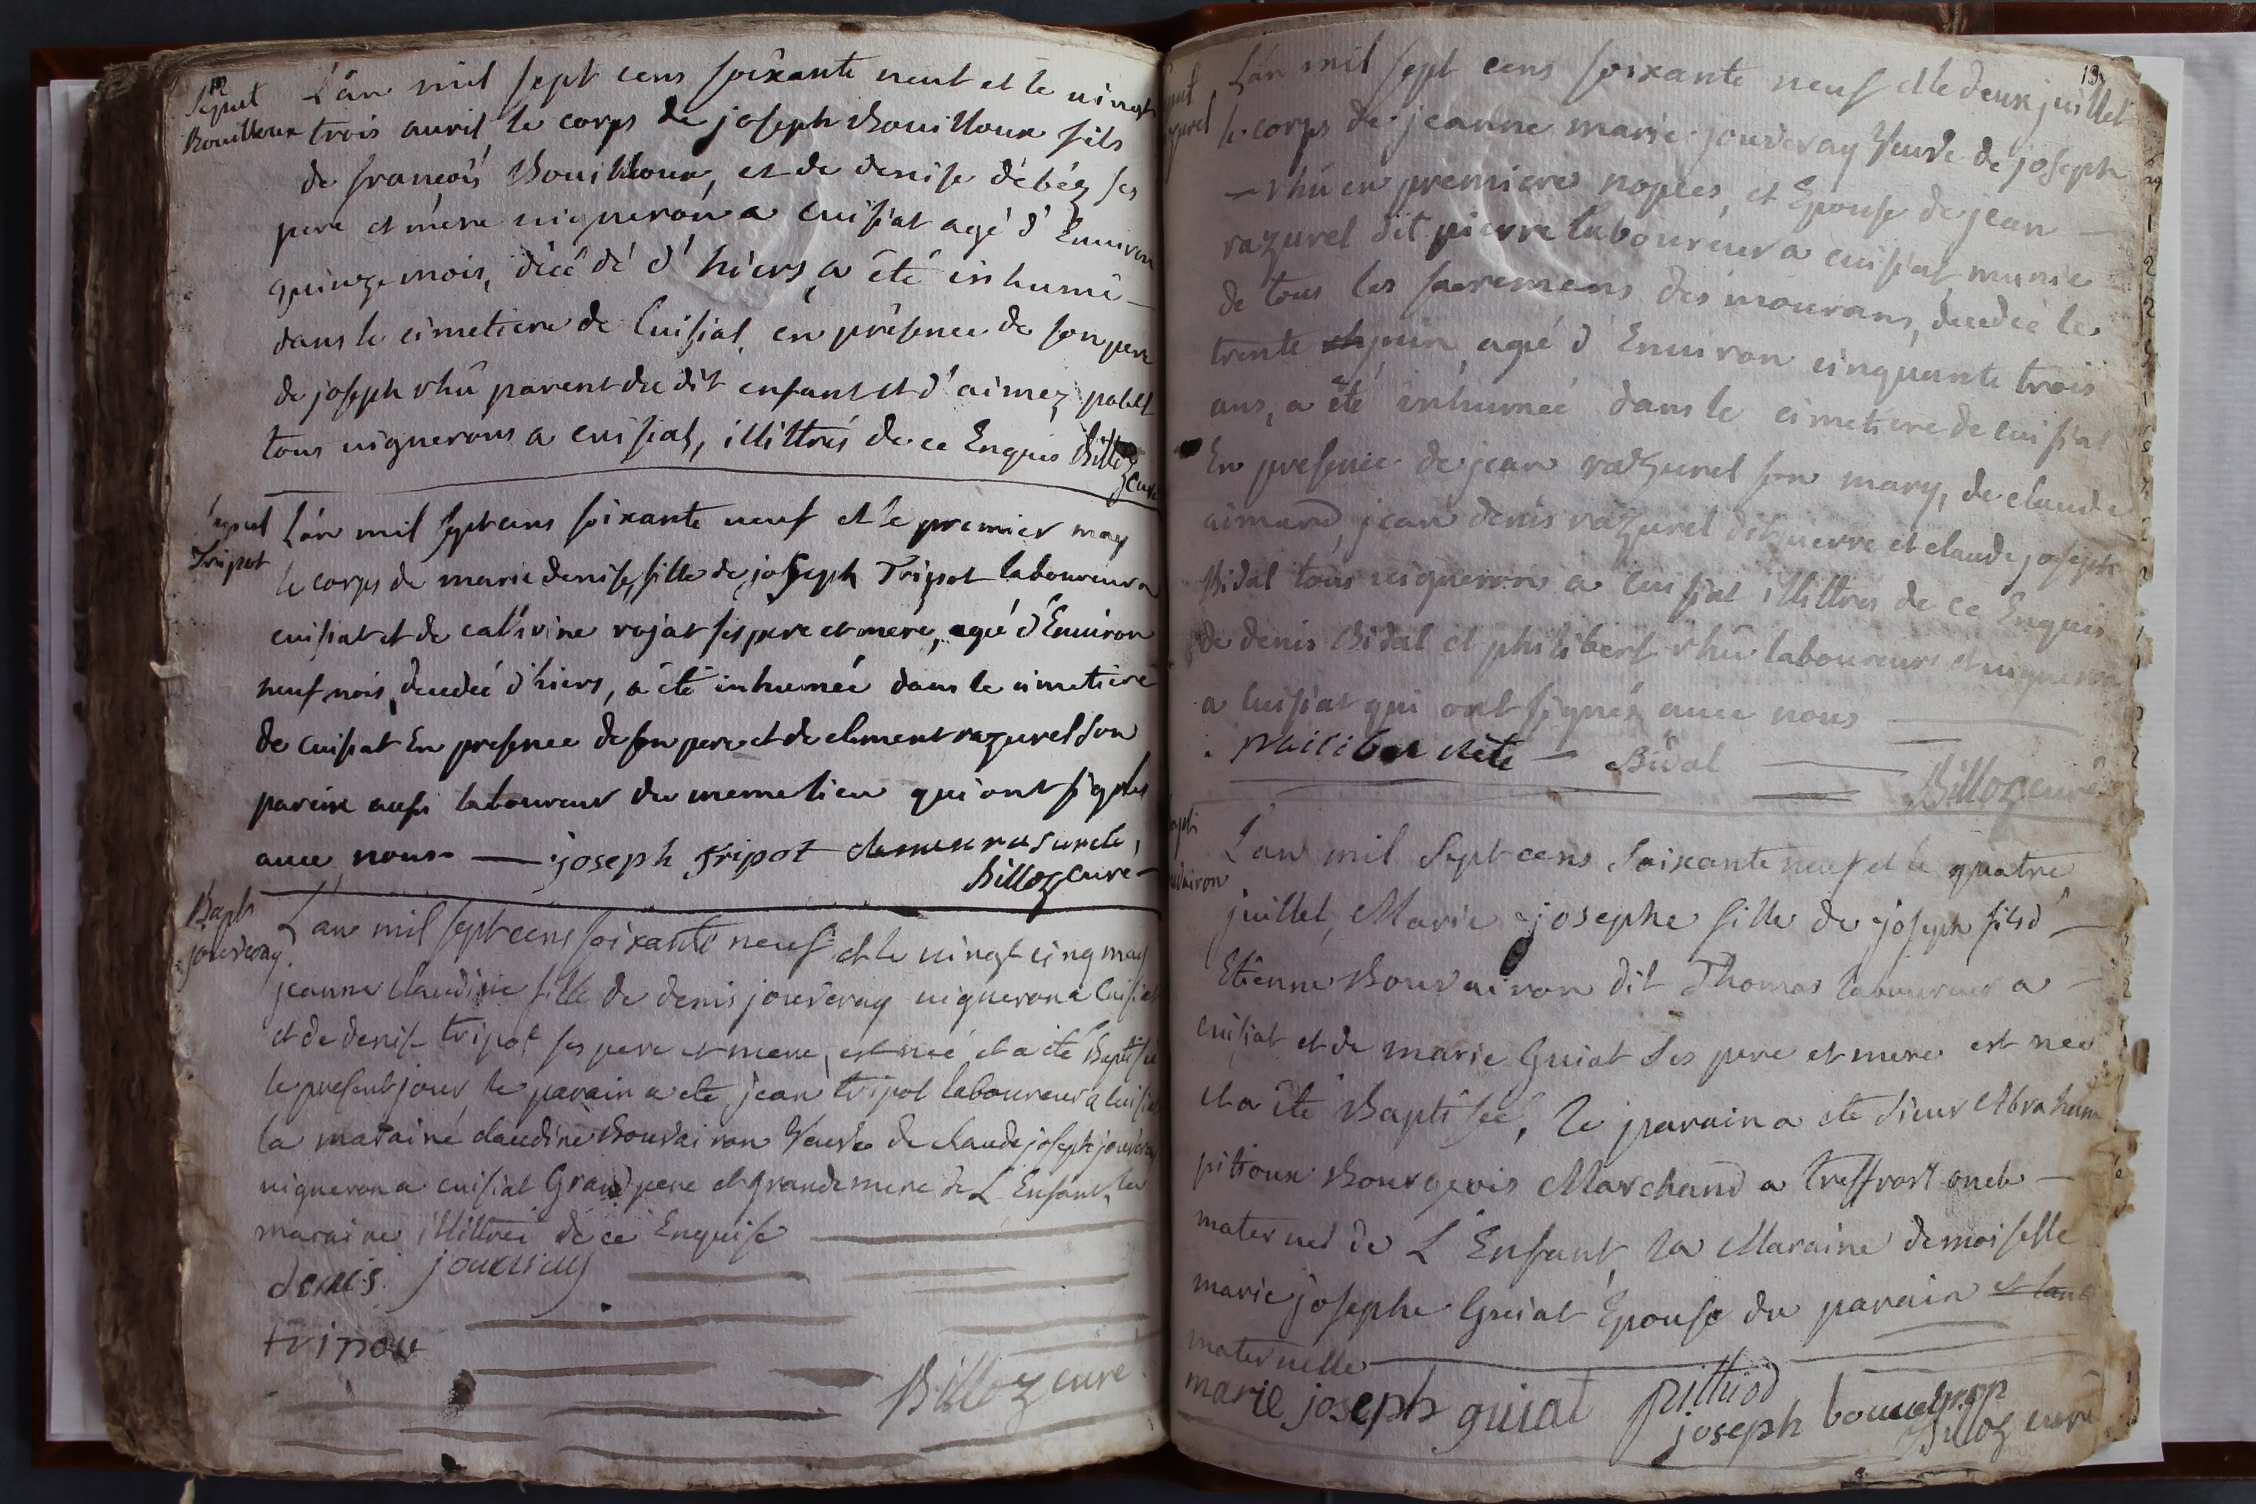 12
Sepult
Bouilloux
L'an mil sept cens soixante neuf et le vingt
trois auril le corps de joseph Bouilloux fils
de francois Bouilloux, et de denise débéz ses
pere et mere uigneron a cuisiat agé d'Enuiron
quinze mois, décédé d'hiers, a été inhumé
dans le cimetiere de Cuisiat, en présence de son pere
de joseph rhû parent du dit enfant et d'aimez
tous uignerons a cuisiat, illittrés de ce Enquis Billoz
Curé
Sepul
Tripot
L'an mil sept cens soixante neuf et le premier may
le corps de marie denise, fille de joseph Tripot laboureur a
cuisiat et de caterine rojat ses pere et mere, agé d'Enuiron
neuf mois, decedée d'hiers, a été inhumée dans le cimetiere
de cuisiat En presence de son pere et de clement razurel son
parain aussi laboureur du meme lieu qui ont signés
auec nous — joseph tripot
Billoz curé
Bapt
jouvray
L'an mil sept cens soixante neuf et le uingt cinq may
jeanne claudine fille de denis jouveray uigneron a Cuisiat
et de denise tripot ses pere et mere, est née et a été Baptisée
le present jour le parain a été jean tripot laboureur a Cuisiat
la maraine claudine Bouvairon veuve de claude joseph jouveray
uigneron a cuisiat Grand pere et grande mere de L'Enfant, la
maraine illittrée de ce Enquise
denis
tripou
Billoz curé
13
L'an mil sept cens soixante neuf et le deux juillet
le corps de jeanne marie jouveray veuve de joseph
— rhû en premiere nopces, et Epouse de jean —
razurel dit pierre laboureur a cuisiat, munie
de tous les sacremens des mourans, decedée le
trente juin, agé d'Enuiron cinquante trois
ans, a été inhumée dans le cimetiere de cuisiat
En presence de jean razurel son mary, de claude
aimard, jean denis razurel dit pierre et claude joseph
Bidal tous uigneron a Cuisiat illittres de ce Enquis
de denis Bidal et philibert rhû laboureurs et uigneron
a Cuisiat qui ont signés auec nous
Bidal
Billoz curé
L'an mil Sept cens Soixante neuf et le quatre
juillet, Marie josephe fille de joseph fils d'
Etienne Bouvairon dit Thomas laboureur a —
cuisiat et de marie Guiat Ses pere et mere est née
et a été Baptisée, le parain a eté Sieur Abraham
pitioux Bourgeois Marchand a treffort oncle —
maternel de L'Enfant, la Maraine demoiselle
marie josephe Guiat Epouse du parain et tante
maternelle
marie joseph guiat
pithiod
joseph
Billoz curé